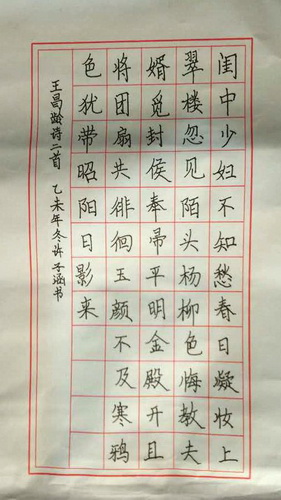 闺中少妇不知愁春日凝妆上
翠楼忽见陌头杨柳色悔教夫
婿觅封侯奉帚平明金殿开且
将团扇共徘徊玉颜不及寒鸦
色犹带昭阳日影来
王昌龄诗二首 乙未年冬许子涵书